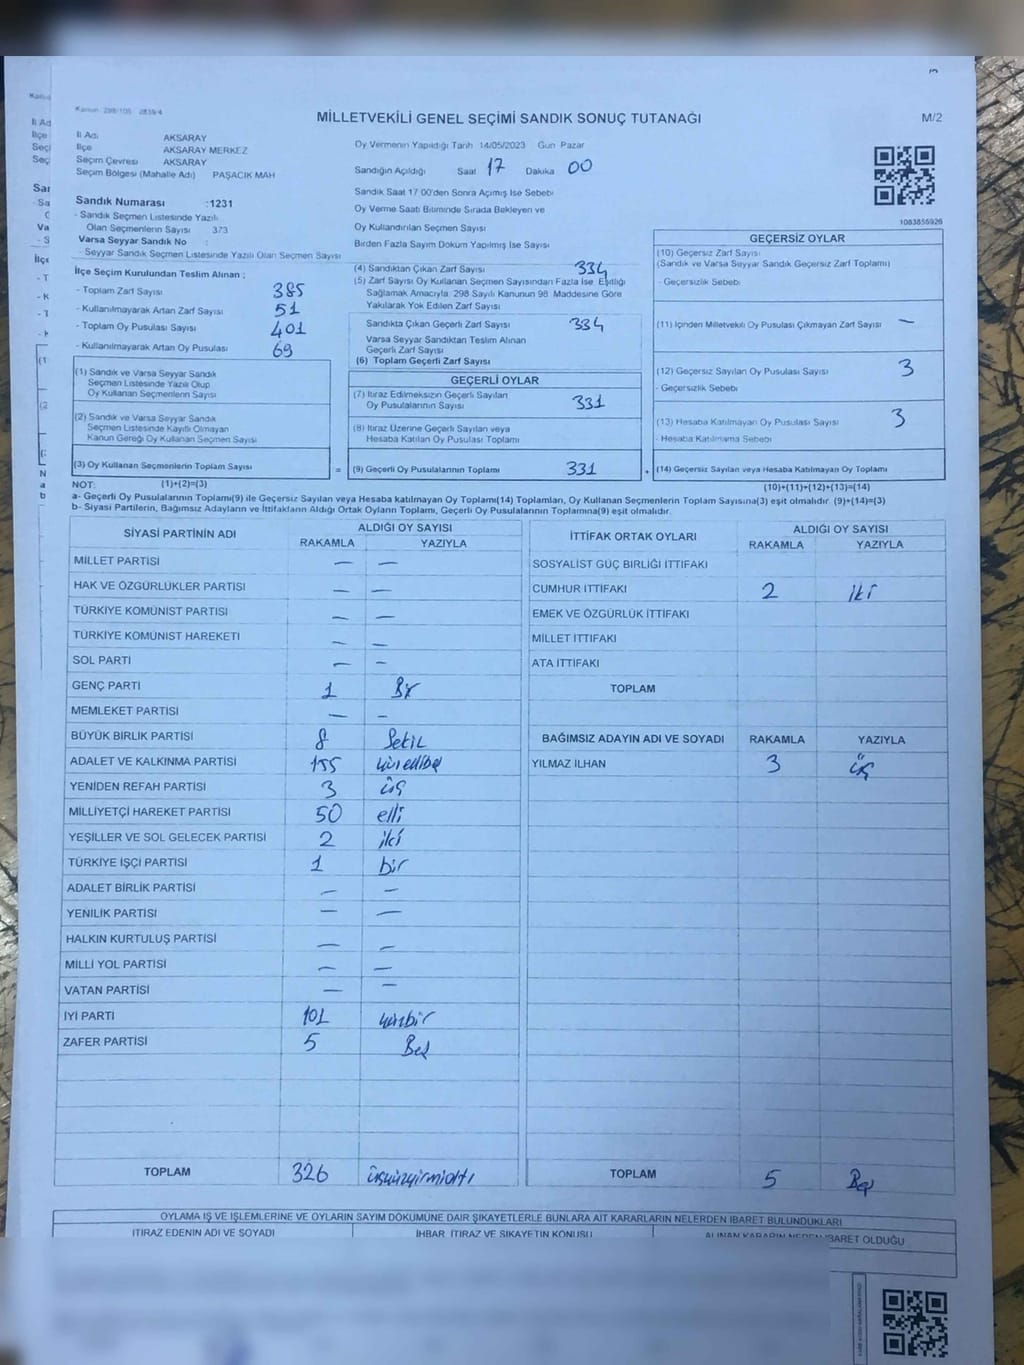 Kanun 298/105 2839/4
MİLLETVEKİLİ GENEL SEÇİMİ SANDIK SONUÇ TUTANAĞI
M/2
İl Adı AKSARAY
İlçe AKSARAY MERKEZ
Seçim Çevresi AKSARAY
Seçim Bölgesi (Mahalle Adı) PAŞACIK MAH
Oy Vermenin Yapıldığı Tarih 14/05/2023 Gün Pazar
Sandığın Açıldığı Saat 17 Dakika 00
Sandık Saat 17 00'den Sonra Açımış İse Sebebi
Oy Verme Saati Bitiminde Sırada Bekleyen ve
Oy Kullandırılan Seçmen Sayısı
Birden Fazla Sayım Döküm Yapılmış İse Sayısı
1083856926
Sandık Numarası :1231
- Sandık Seçmen Listesinde Yazılı
Olan Seçmenlerin Sayısı 373
Varsa Seyyar Sandık No :
- Seyyar Sandık Seçmen Listesinde Yazılı Olan Seçmen Sayısı
İlçe Seçim Kurulundan Teslim Alınan ;
- Toplam Zarf Sayısı 385
- Kullanılmayarak Artan Zarf Sayısı 51
- Toplam Oy Pusulası Sayısı 401
- Kullanılmayarak Artan Oy Pusulası 69
(1) Sandık ve Varsa Seyyar Sandık
Seçmen Listesinde Yazılı Olup
Oy Kullanan Seçmenlerin Sayısı
(2) Sandık ve Varsa Seyyar Sandık
Seçmen Listesinde Kayıtlı Olmayan
Kanun Gereği Oy Kullanan Seçmen Sayısı
(3) Oy Kullanan Seçmenlerin Toplam Sayısı =
(4) Sandıktan Çıkan Zarf Sayısı 334
(5) Zarf Sayısı Oy Kullanan Seçmen Sayısından Fazla İse Eşitliği
Sağlamak Amacıyla 298 Sayılı Kanunun 98 Maddesine Göre
Yakılarak Yok Edilen Zarf Sayısı
Sandıkta Çıkan Geçerli Zarf Sayısı 334
Varsa Seyyar Sandıktan Teslim Alınan
Geçerli Zarf Sayısı
(6) Toplam Geçerli Zarf Sayısı
GEÇERLİ OYLAR
(7) İtiraz Edilmeksizin Geçerli Sayılan
Oy Pusulalarının Sayısı 331
(8) İtiraz Üzerine Geçerli Sayılan veya
Hesaba Katılan Oy Pusulası Toplamı
(9) Geçerli Oy Pusulalarının Toplamı 331 +
GEÇERSİZ OYLAR
(10) Geçersiz Zarf Sayısı
(Sandık ve Varsa Seyyar Sandık Geçersiz Zarf Toplamı)
- Geçersizlik Sebebi
(11) İçinden Milletvekili Oy Pusulası Çıkmayan Zarf Sayısı —
(12) Geçersiz Sayılan Oy Pusulası Sayısı 3
- Geçersizlik Sebebi
(13) Hesaba Katılmayan Oy Pusulası Sayısı 3
- Hesaba Katılmama Sebebi
(14) Geçersiz Sayılan veya Hesaba Katılmayan Oy Pusulası Toplamı
NOT: (1)+(2)=(3) (10)+(11)+(12)+(13)=(14)
a- Geçerli Oy Pusulalarının Toplamı(9) ile Geçersiz Sayılan veya Hesaba katılmayan Oy Toplamı(14) Toplamları, Oy Kullanan Seçmenlerin Toplam Sayısına(3) eşit olmalıdır. (9)+(14)=(3)
b- Siyasi Partilerin, Bağımsız Adayların ve İttifakların Aldığı Ortak Oyların Toplamı, Geçerli Oy Pusulalarının Toplamına(9) eşit olmalıdır.
SİYASİ PARTİNİN ADI ALDIĞI OY SAYISI
RAKAMLA YAZIYLA
MİLLET PARTİSİ — —
HAK VE ÖZGÜRLÜKLER PARTİSİ — —
TÜRKİYE KOMÜNİST PARTİSİ — —
TÜRKİYE KOMÜNİST HAREKETİ — —
SOL PARTİ — —
GENÇ PARTİ 1 Bir
MEMLEKET PARTİSİ — —
BÜYÜK BİRLİK PARTİSİ 8 Sekiz
ADALET VE KALKINMA PARTİSİ 155 yüzellibeş
YENİDEN REFAH PARTİSİ 3 üç
MİLLİYETÇİ HAREKET PARTİSİ 50 elli
YEŞİLLER VE SOL GELECEK PARTİSİ 2 iki
TÜRKİYE İŞÇİ PARTİSİ 1 bir
ADALET BİRLİK PARTİSİ — —
YENİLİK PARTİSİ — —
HALKIN KURTULUŞ PARTİSİ — —
MİLLİ YOL PARTİSİ — —
VATAN PARTİSİ — —
İYİ PARTİ 101 yüzbir
ZAFER PARTİSİ 5 Beş
TOPLAM 326 üçyüzyirmialtı
İTTİFAK ORTAK OYLARI ALDIĞI OY SAYISI
RAKAMLA YAZIYLA
SOSYALİST GÜÇ BİRLİĞİ İTTİFAKI
CUMHUR İTTİFAKI 2 iki
EMEK VE ÖZGÜRLÜK İTTİFAKI
MİLLET İTTİFAKI
ATA İTTİFAKI
TOPLAM
BAĞIMSIZ ADAYIN ADI VE SOYADI RAKAMLA YAZIYLA
YILMAZ İLHAN 3 üç
TOPLAM 5 Beş
OYLAMA İŞ VE İŞLEMLERİNE VE OYLARIN SAYIM DÖKÜMÜNE DAİR ŞİKAYETLERLE BUNLARA AİT KARARLARIN NELERDEN İBARET BULUNDUKLARI
İTİRAZ EDENİN ADI VE SOYADI İHBAR, İTİRAZ VE ŞİKAYETİN KONUSU ALINAN KARARIN NEDEN İBARET OLDUĞU